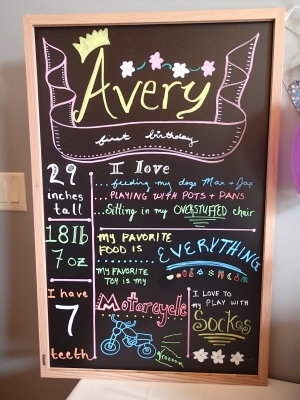 Avery
first birthday
29
inches
tall
I love
...feeding my dogs Max + Jax
...PLAYING WITH POTS + PANS
...Sitting in my OVERSTUFFED chair
18lb
7oz
MY FAVORITE
FOOD IS .......
EVERYTHING
MY FAVORITE
TOY IS MY
Motorcycle
vrooom
I have
7
teeth
I LOVE TO
MY PLAY WITH
Socks